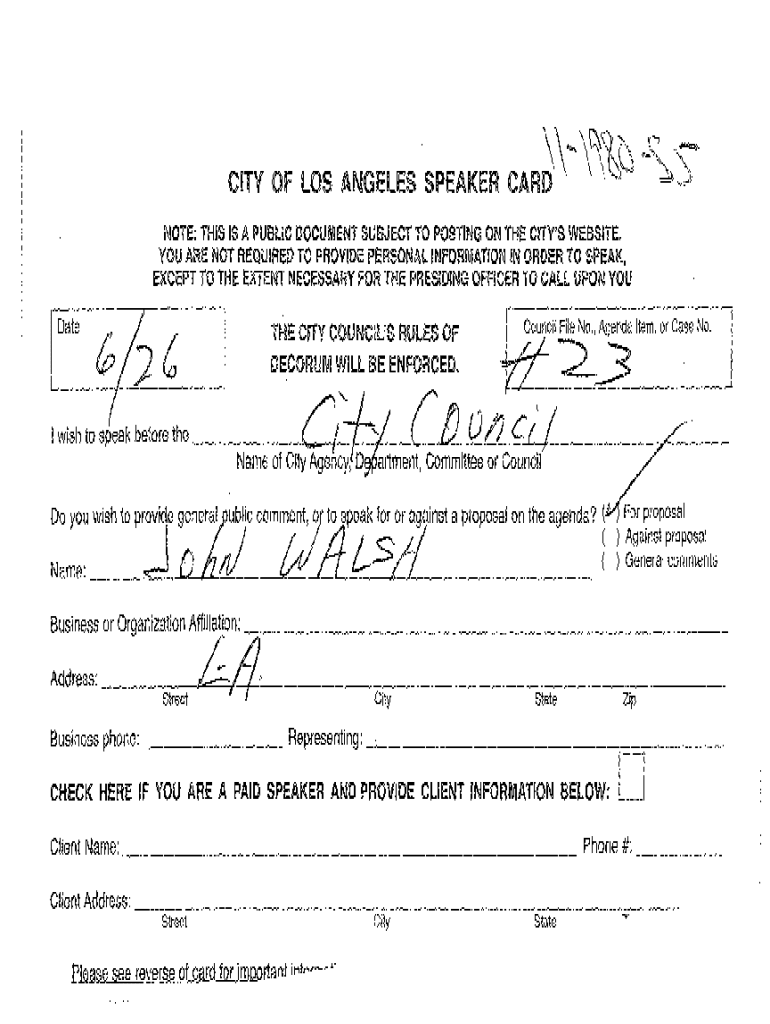 11-1980-S5
CITY OF LOS ANGELES SPEAKER CARD
NOTE: THIS IS A PUBLIC DOCUMENT SUBJECT TO POSTING ON THE CITY'S WEBSITE.
YOU ARE NOT REQUIRED TO PROVIDE PERSONAL INFORMATION IN ORDER TO SPEAK,
EXCEPT TO THE EXTENT NECESSARY FOR THE PRESIDING OFFICER TO CALL UPON YOU
Date
6/26
THE CITY COUNCIL'S RULES OF
DECORUM WILL BE ENFORCED.
Council File No., Agenda Item, or Case No.
# 23
I wish to speak before the City Council
Name of City Agency, Department, Committee or Council
Do you wish to provide general public comment, or to speak for or against a proposal on the agenda? (✓) For proposal
( ) Against proposal
( ) General comments
Name: JOHN WALSH
Business or Organization Affiliation:
Address: L-A.
Street City State Zip
Business phone: Representing:
CHECK HERE IF YOU ARE A PAID SPEAKER AND PROVIDE CLIENT INFORMATION BELOW:
Client Name: Phone #:
Client Address:
Street City State
Please see reverse of card for important